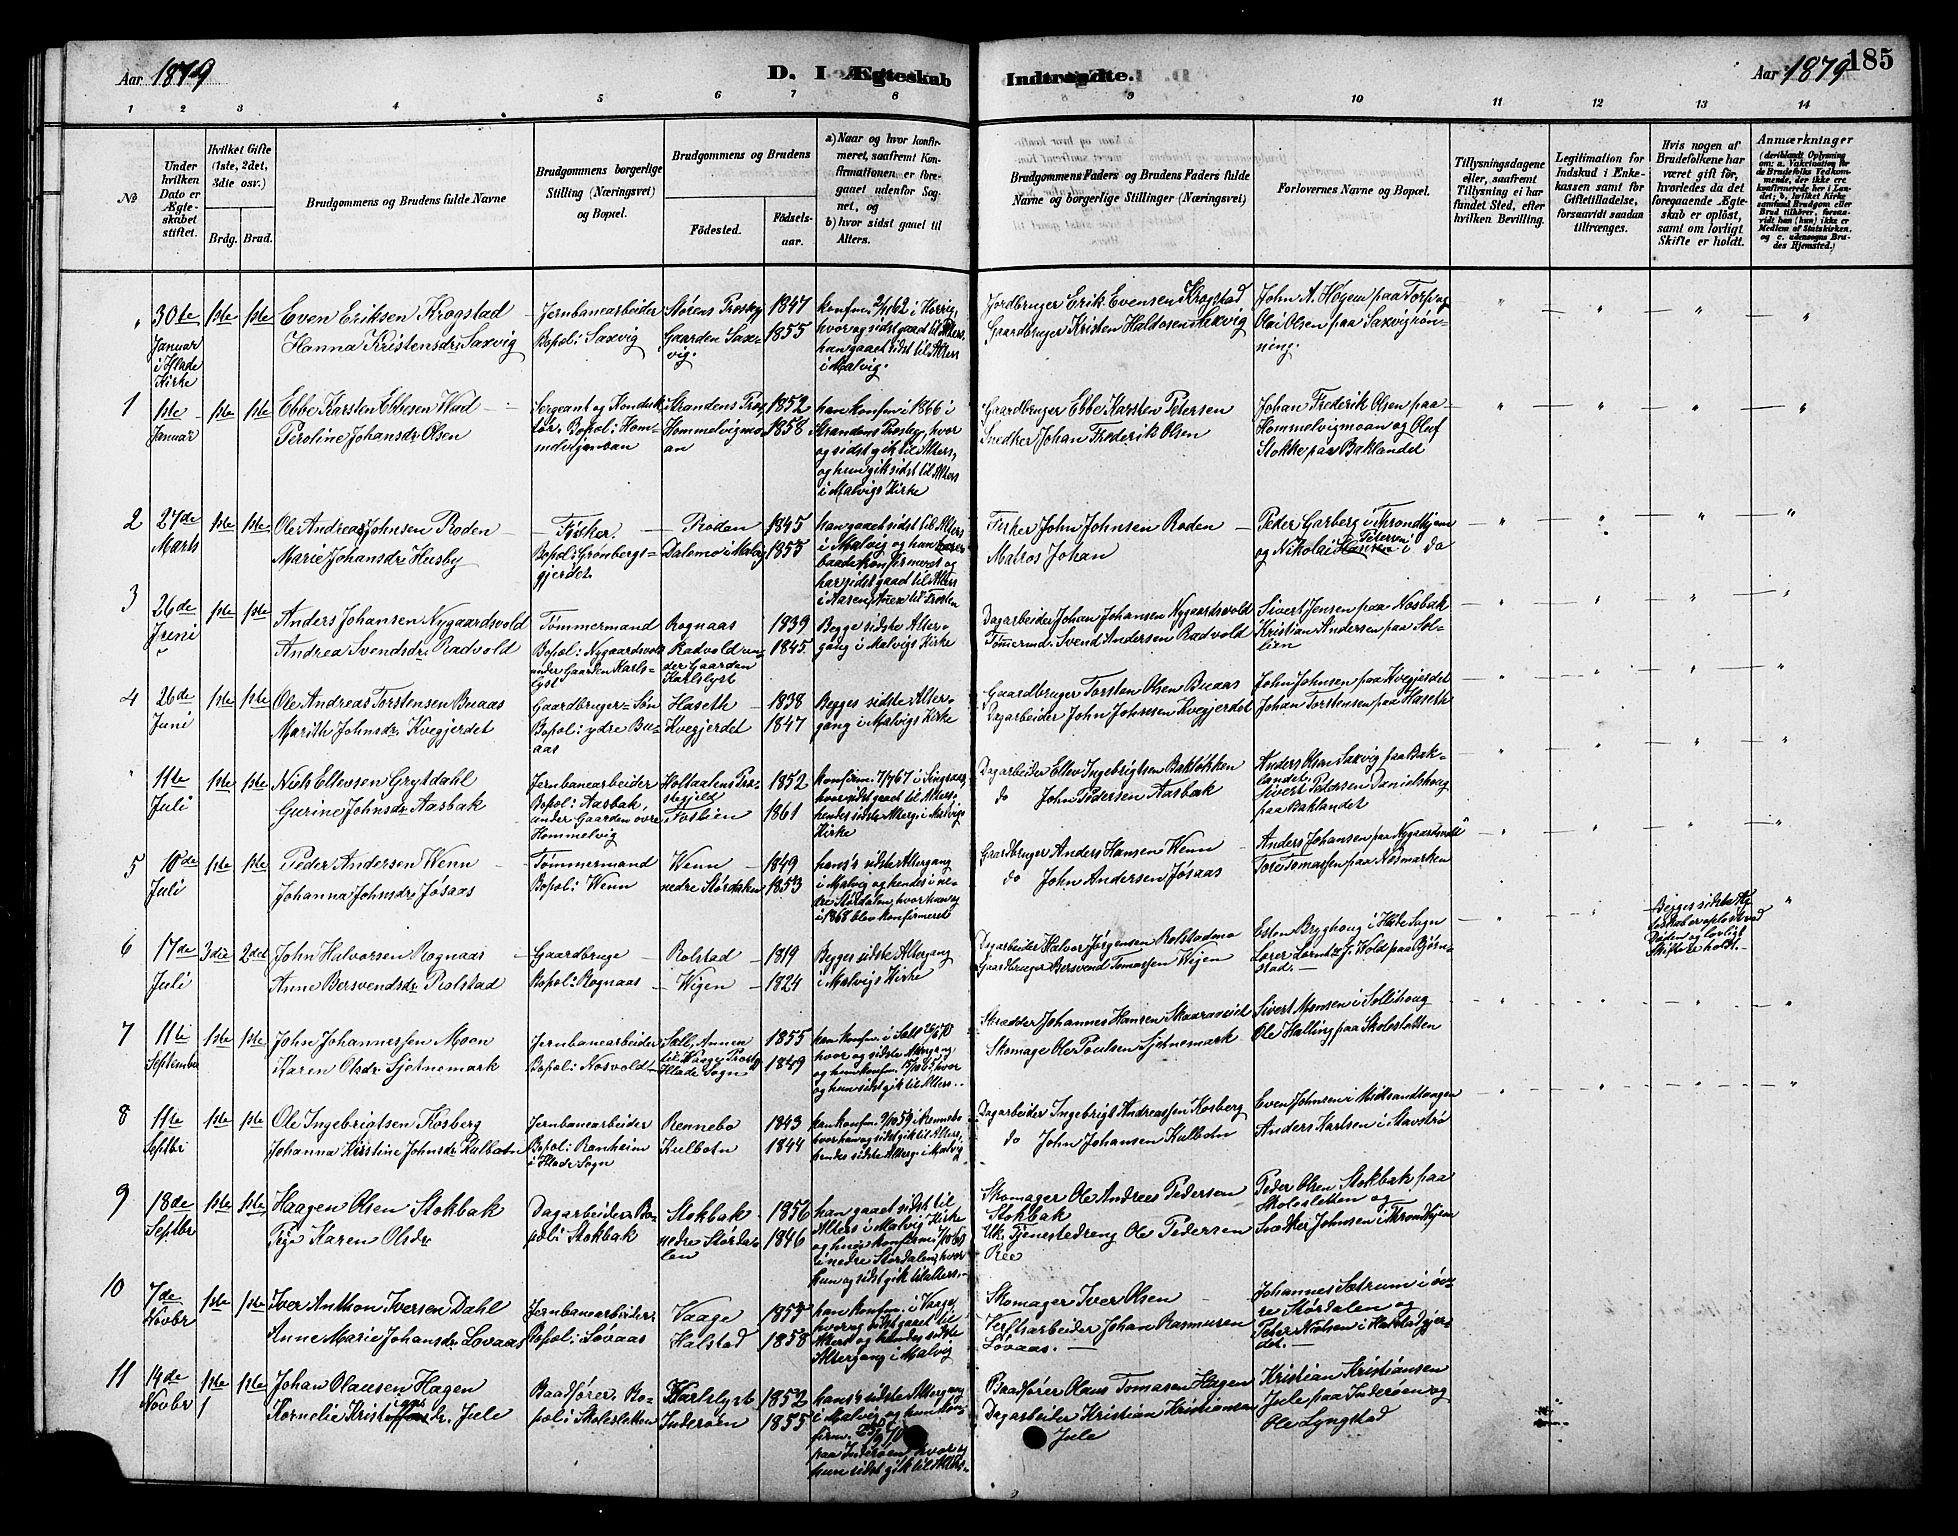 Aar 1879
D. I Ægteskab Indtraadte.
Aar 1879
185
1 2 3 4 5 6 7 8 9 10 11 12 13 14
№
Under hvilken Dato er Ægteskabet stiftet.
Hvilket Gifte (1ste, 2det, 3die osv.)
Brdg. Brud.
Brudgommens og Brudens fulde Navne
Brudgommens borgerlige Stilling (Næringsvei) og Bopæl.
Brudgommens og Brudens
Födested.
Födselsaar.
a) Naar og hvor konfirmeret, saafremt Konfirmationen er foregaaet udenfor Sognet, og
b) hvor sidst gaaet til Alters.
Brudgommens Faders og Brudens Faders fulde Navne og borgerlige Stillinger (Næringsvei)
Forlovernes Navne og Bopæl.
Tillysningsdagene eller, saafremt Tillysning ei har fundet Sted, efter hvilken Bevilling.
Legitimation for Indskud i Enkekassen samt for Giftetilladelse, forsaavidt saadan tiltrænges.
Hvis nogen af Brudefolkene har været gift för, hvorledes da det foregaaende Ægteskab er oplöst, samt om lovligt Skifte er holdt.
Anmærkninger
(deriblandt Oplysning om: a. Vaksination for de Brudefolks Vedkommende, der ikke ere konfirmerede her i Landet; b. hvilket Kirkesamfund Brudgom eller Brud tilhörer, forsaavidt han (hun) ikke er Medlem af Statskirken, og c. udensogns Brudes Hjemsted.)
" 30te Januar i Hlade Kirke 1ste 1ste
Even Eriksen Krogstad
Hanna Kristensdr. Saxvig
Jernbanearbeider
Bopæl: Saxvig
Størens Præstgj
Gaarden Saxvig.
1847
1855
hvor og sidst gaaet til Alters,
hun gaaet sidst til Alters
i Malvig.
Jordbruger Erik Evensen Krogstad
Gaardbruger Kristen Haldosen Saxvig
John A. Høgem paa Torp og
Olai Olsen paa Saxvigrønning.
1 1ste Januar 1ste 1ste
Ebbe Karsten Ebbesen Wad
Peroline Johansdr. Olsen
Sergeant og Konduktør. Bopæl: Hommelvigmoan
Strandens Præstgj
Hommelvigmoan
1852
1858
han konfm. i 1866 i
Strandens Præstgj, hvor
og sidst gik til Alters,
og hun gik sidst til Alters
i Malvigs Kirke
Gaardbruger Ebbe Karsten Petersen
Snedker Johan Frederik Olsen
Johan Frederik Olsen paa
Hommelvigmoan og Oluf
Stokke paa Baklandet
2 27de Marts 1ste 1ste
Ole Andreas Johnsen Roden
Marie Johansdr. Husby
Fisker.
Bopæl: Grønbergsgjerdet
Roden
Dalemo i Malvig
1845
1855
han gaaet sidst til Alters
i Malvig og hun
baade konfirmeret og
har sidst gaaet til Alters
i Aasen, Annex til Frosten
Fisker John Johnsen Roden
Matros Johan
Peder Garberg i Trondhjem
og Nikolai Hansen Petersen i do
3 26de Juni 1ste 1ste
Anders Johansen Nygaardsvold
Andrea Svendsdr. Radvold
Tømmermand
Bopæl: Nygaardsvold
under Gaarden Karlslyst
Rognaas
Radvold under Gaarden
Karlslyst
1839
1845
Begge sidste Altergang i Malvigs Kirke
Dagarbeider Johan Johansen Nygaardsvold
Tømmermd. Svend Andersen Radvold
Sivert Jensen paa Nosbak
Kristian Andersen paa Sollien
4 26de Juni 1ste 1ste
Ole Andreas Torstensen Buaas
Marith Johnsdr. Kvegjerdet
Gaardbruger-Søn
Bopæl: ydre Buaas
Haseth
Kvegjerdet
1838
1847
Begges sidste Altergang i Malvigs Kirke
Gaardbruger Torsten Olsen Buaas
Dagarbeider John Johnsen Kvegjerdet
John Johnsen paa Kvegjerdet
Johan Torstensen paa Haseth
" 11te Juli 1ste 1ste
Niels Ellevsen Grytdahl
Gurine Johnsdr. Aasbak
Jernbanearbeider
Bopæl: Aasbak,
under Gaarden øvre
Hommelvig
Holtaalens Præstegjeld
Foslien
1852
1861
konfirm. 7/7 67 i Singsaas,
hvor sidst gaaet til Alters,
hendes sidste Alterg. i Malvigs
Kirke
Dagarbeider Ellev Ingebrigtsen Bakløkken
do John Pedersen Aasbak
Anders Olsen Saxvig paa Baklandet.
Sivert Petersen Danielshoug
paa Baklandet
5 10de Juli 1ste 1ste
Peder Andersen Wenn
Johanna Johnsdr. Jøsaas
Tømmermand
Bopæl: Wenn
Wenn
nedre Stördalen
1849
1853
hans's sidste Altergang
i Malvig og hendes i nedre Stördalen, hvor hun og
i 1868 blev konfirmeret
Gaardbruger Anders Hansen Wenn
do John Andersen Jøsaas
Anders Johansen paa Nygaardsvold
Tore Tomassen paa Nosmarken
6 17de Juli 3die 2det
John Halvorsen Rognaas
Anne Bersvendsdr. Rolstad
Gaardbruge
Bopæl: Rognaas
Rolstad
Wigen
1819
1824
Begges sidste Altergang
i Malvigs Kirke
Dagarbeider Halvor Jørgensen Rolstadmo
Gaardbruger Bersvend Tomassen Wigen
Esten Bryghoug i Hlade Sogn
Lærer Lorntz J. Wold paa Bjørnstad.
Begges sidste Ægteskab er opløst ved
Døden og lovligt
Skifte er holdt.
7 11te September 1ste 1ste
John Johannessen Moon
Karen Olsdr. Sjetnemark
Jernbanearbeider
Bopæl: Nosvold
Sell, Annex
til Vaage Præstgj
Hlade Sogn
1855
1849
han konfm. i Sell 26/6 70
hvor og sidste Altergang
og hun konfm. 15/10 65 hvor
og hun sidst gik til Alters.
Skrædder Johannes Hansen
Skomage Ole Poulsen Sjetnemark
Sivert Monsen i Sollihoug
Ole Halling paa Skolesletten
8 11te Septbr 1ste 1ste
Ole Ingebrigtsen Kosberg
Johanna Kirstine Johnsdr. Kulbotn
Jernbanearbeider
Bopæl: Ranheim
i Hlade Sogn
Rennebo
Kulbotn
1843
1844
han konfm. 2/10 59 i Rennebo
hvor han og sidst gik til Alters,
hendes sidste Alterg. i Malvig
Dagarbeider Ingebrigt Andreassen Kosberg
do John Johansen Kulbotn
Even Johnsen i Midtsandtangen
Anders Karlsen i Stavsirø
9 18de Septbr 1ste 1ste
Haagen Olsen Stokbak
Pige Karen Olsdr
Dagarbeider. Bopæl: Stokbak
Stokbak
nedre Stordalen
1856
1846
han gaaet sidst til
Alters i Malvig Kirke
og hun konfirm.
i nedre Stordalen, hvor
hun og sidst gik til Alters.
Skomager Ole Andreas Pedersen
Stokbak
Uk. Tjenestedreng Ole Pedersen
Ree
Peder Olsen Stokbak paa
Skolesletten og
Snedker Johnsen i Trondhjem
10 7de Novbr 1ste 1ste
Iver Anthon Iversen Dahl
Anne Marie Johansdr. Lovaas
Jernbanearbeider.
Bopæl: Lovaas
Vaage
Halstad
1853
1858
han konfm. i Vaage
hvor og sidst gaaet til
Alters og hendes sidste
Altergang i Malvig
Skomager Iver Olsen
Verftsarbeider Johan Rasmusen
Lovaas.
Johannes Sætrum i øvre Stordalen og
Peter Nielsen i Halstadgjerdet.
11 14de Novbr 1ste 1ste
Johan Olausen Hagen
Kornelie Kristiansdr. Jule
Baadfører. Bopæl: Skolesletten
Karlslyst
Inderøen
1852
1855
hans's sidste Altergang
i Malvig og hun konfirm.
paa Inderøen, hvor og
hun sidst gik til Alters.
Baadfører Olaus Tomasen Hagen
Dagarbeider Kristian Kristiansen
Jule
Kristian Kristiansen
Jule paa Inderøen og
Ole Lyngstad